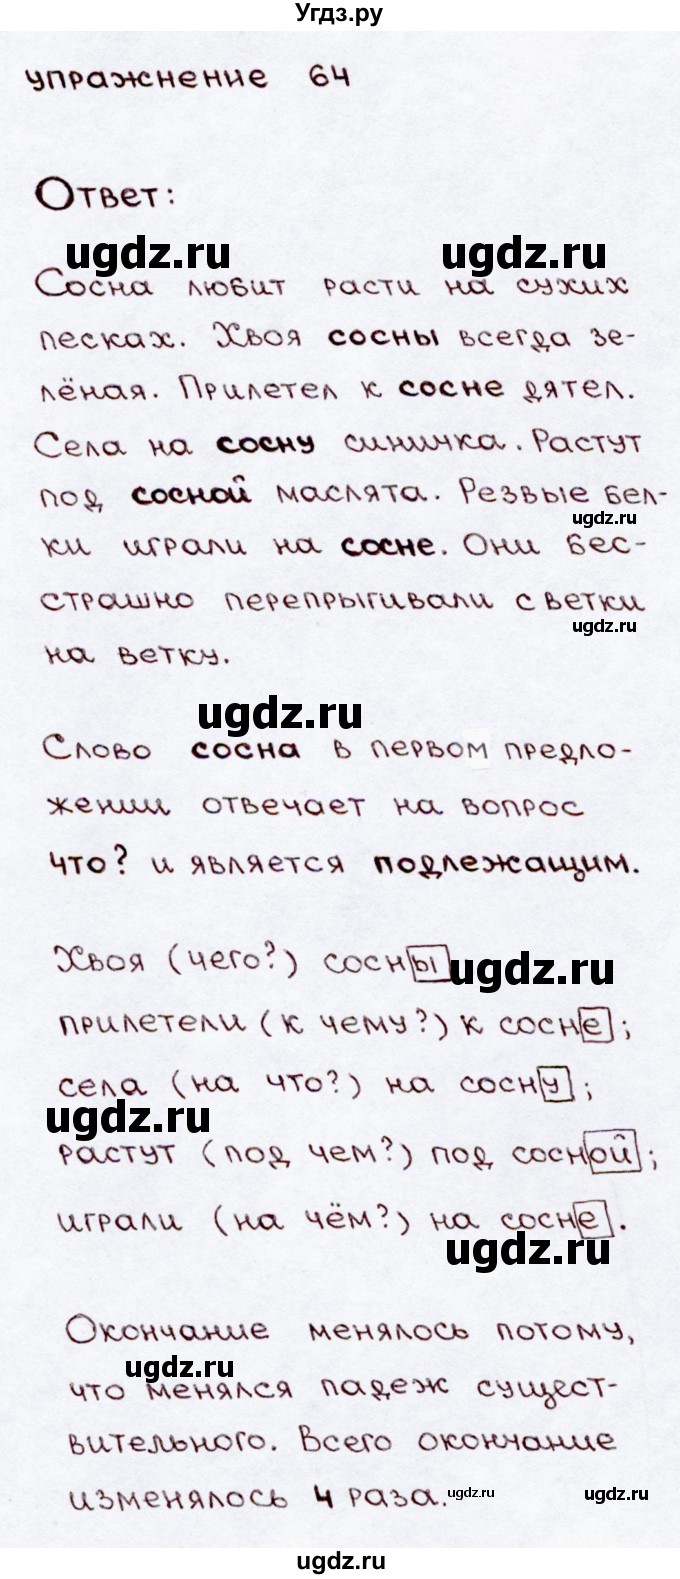 Угдз.ру
упражнение 64
Ответ:
ugdz.ru ugdz.ru
Сосна любит расти на сухих
песках. Хвоя сосны всегда зе-
лёная. Прилетел к сосне дятел.
Села на сосну синичка. Растут
под сосной маслята. Резвые бел-
ugdz.ru
ки играли на сосне. Они бес-
страшно перепрыгивали с ветки
ugdz.ru
на ветку.
ugdz.ru
Слово сосна в первом предло-
жении отвечает на вопрос
что? и является подлежащим.
Хвоя (чего?) сосны ugdz.ru
прилетели (к чему?) к сосне;
села (на что?) на сосну;
ugdz.ru
растут (под чем?) под сосной;
играли (на чём?) на сосне.
ugdz.ru
Окончание менялось потому,
ugdz.ru
что менялся падеж сущест-
вительного. Всего окончание
изменялось 4 раза. ugdz.ru ugdz.ru
ugdz.ru